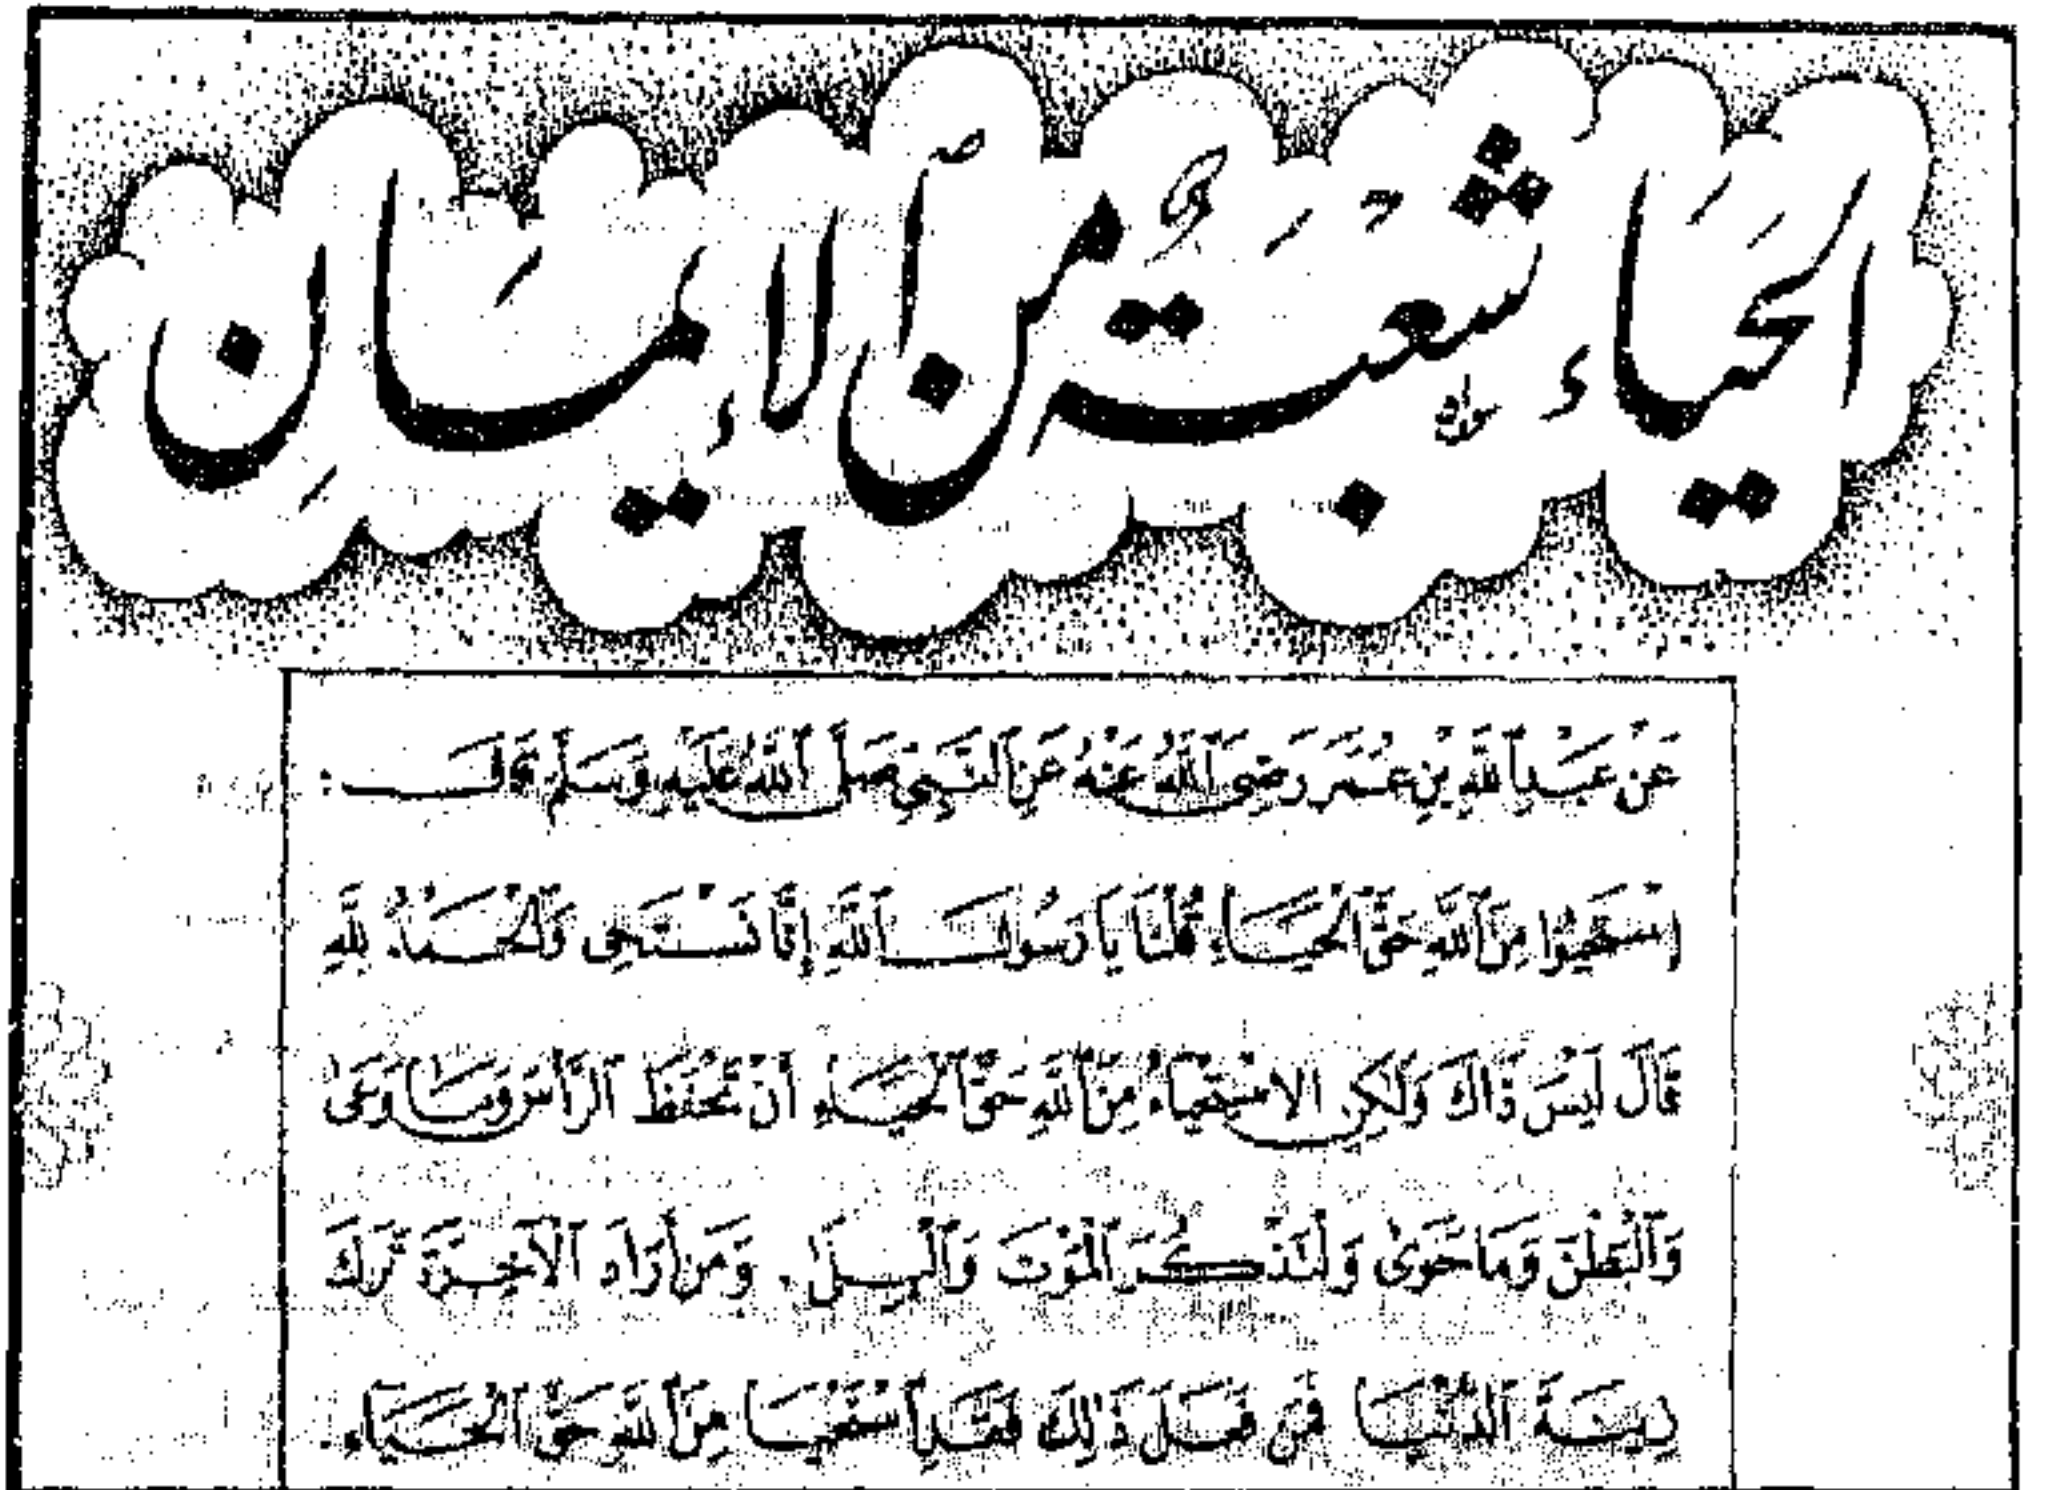 الحَيَاءُ شُعْبَةٌ مِنَ الإِيمَانِ
عَنْ عَبْدِ اللَّهِ بْنِ عُمَرَ رَضِيَ اللَّهُ عَنْهُ عَنِ النَّبِيِّ صَلَّى اللَّهُ عَلَيْهِ وَسَلَّمَ قَالَ :
اِسْتَحْيُوا مِنَ اللَّهِ حَقَّ الْحَيَاءِ، قُلْنَا يَا رَسُولَ اللَّهِ إِنَّا نَسْتَحِي وَالْحَمْدُ لِلَّهِ
قَالَ لَيْسَ ذَاكَ وَلَكِنِ الاسْتِحْيَاءُ مِنَ اللَّهِ حَقَّ الْحَيَاءِ أَنْ تَحْفَظَ الرَّأْسَ وَمَا وَعَى
وَالْبَطْنَ وَمَا حَوَى وَلْتَذْكُرَ الْمَوْتَ وَالْبِلَى. وَمَنْ أَرَادَ الْآخِرَةَ تَرَكَ
زِينَةَ الدُّنْيَا فَمَنْ فَعَلَ ذَلِكَ فَقَدِ اسْتَحْيَا مِنَ اللَّهِ حَقَّ الْحَيَاءِ.